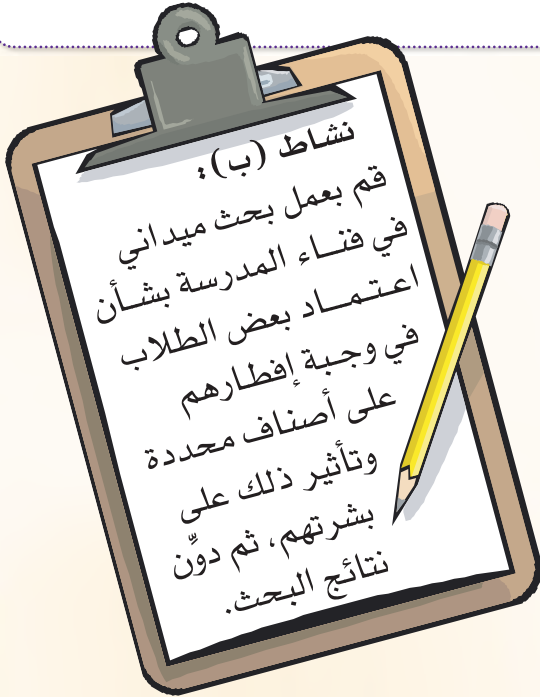 نشاط (ب):
قم بعمل بحث ميداني
في فناء المدرسة بشأن
اعتماد بعض الطلاب
في وجبة إفطارهم
على أصناف محددة
وتأثير ذلك على
بشرتهم، ثم دوِّن
نتائج البحث.